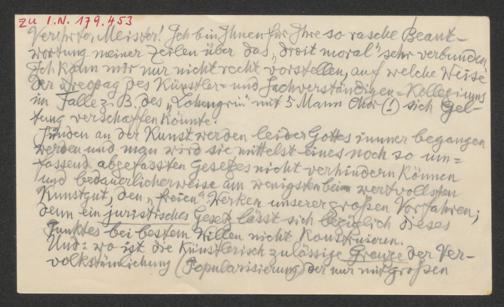 zu I.N. 179.453
Verehrter Meister! Ich bin Ihnen für Ihre so rasche Beant-
wortung meiner Zeilen über das „droit moral“ sehr verbunden.
Ich kann mir nur nicht recht vorstellen, auf welche Weise
der Areopag des Künstler- und Sachverständigen-Kollegiums
im Falle z. B. des „Lohengrin“ mit 5 Mann Chor (!) sich Gel-
tung verschaffen könnte.
Sünden an der Kunst werden leider Gottes immer begangen
werden und man wird sie mittelst eines noch so um-
fassend abgefassten Gesetzes nicht verhindern können
und bedauerlicherweise am wenigsten beim wertvollsten
Kunstgut, den „freien“ Werken unserer großen Vorfahren;
denn ein juristisches Gesetz lässt sich bezüglich dieses
Punktes bei bestem Willen nicht konstruieren.
Und: wo ist die künstlerisch zulässige Grenze der Ver-
volkstümlichung (Popularisierung) der nur mit großen